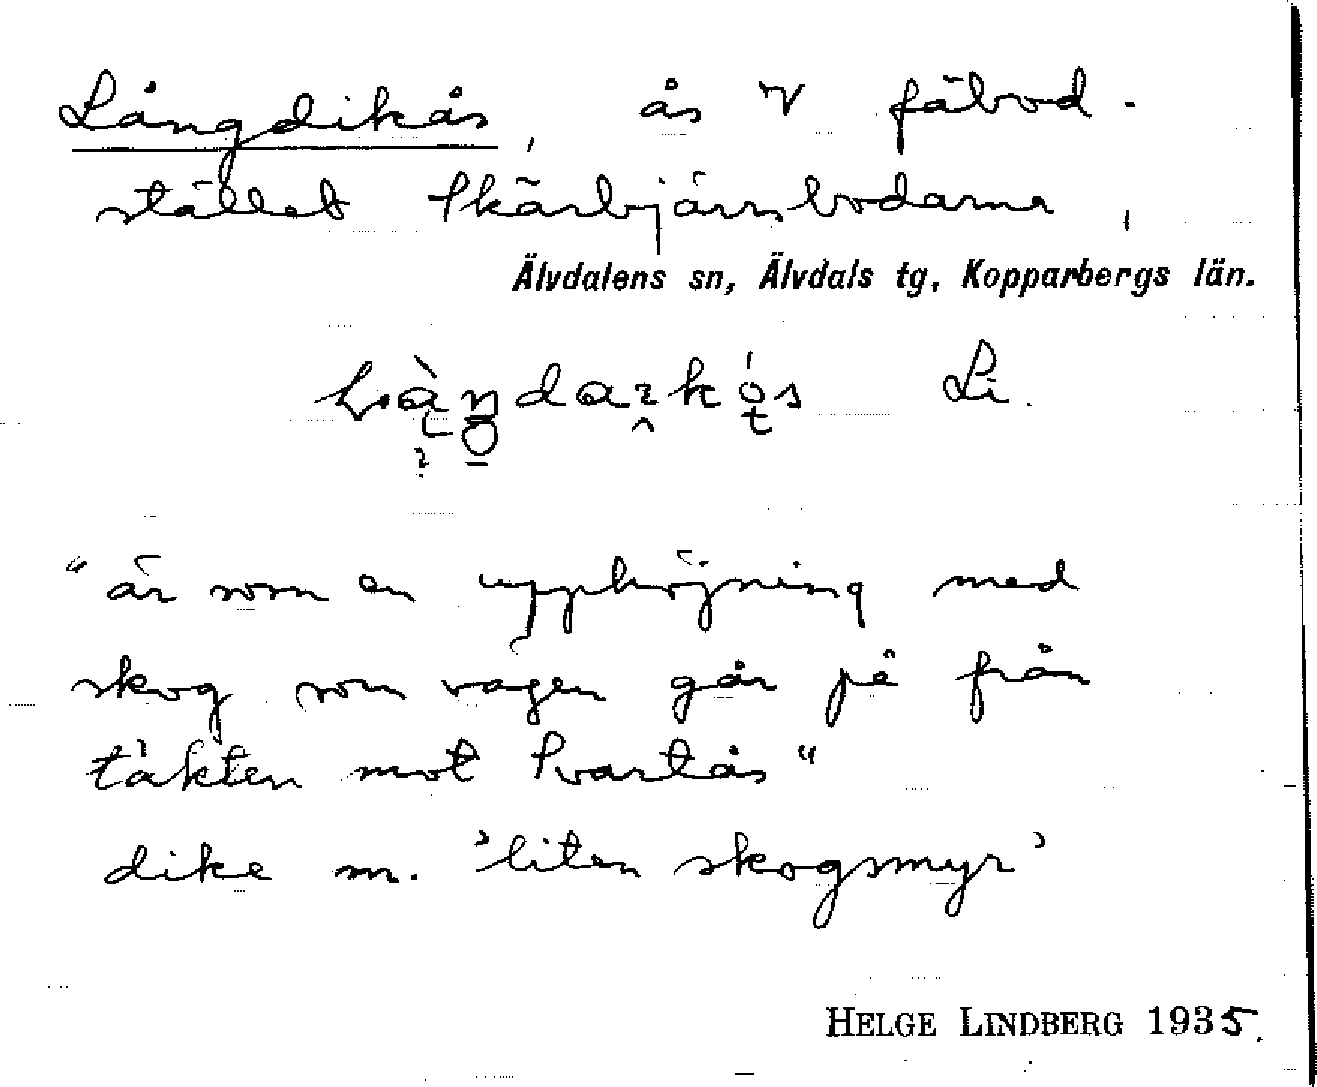 Långdikås, ås V fäbod-
stället Skärbjärnsbodarna,
Älvdalens sn, Älvdals tg, Kopparbergs län.
Li.
"är som en upphöjning med
skog som vägen går på från
täkten mot Svartås"
dike m. 'liten skogsmyr'
HELGE LINDBERG 1935.